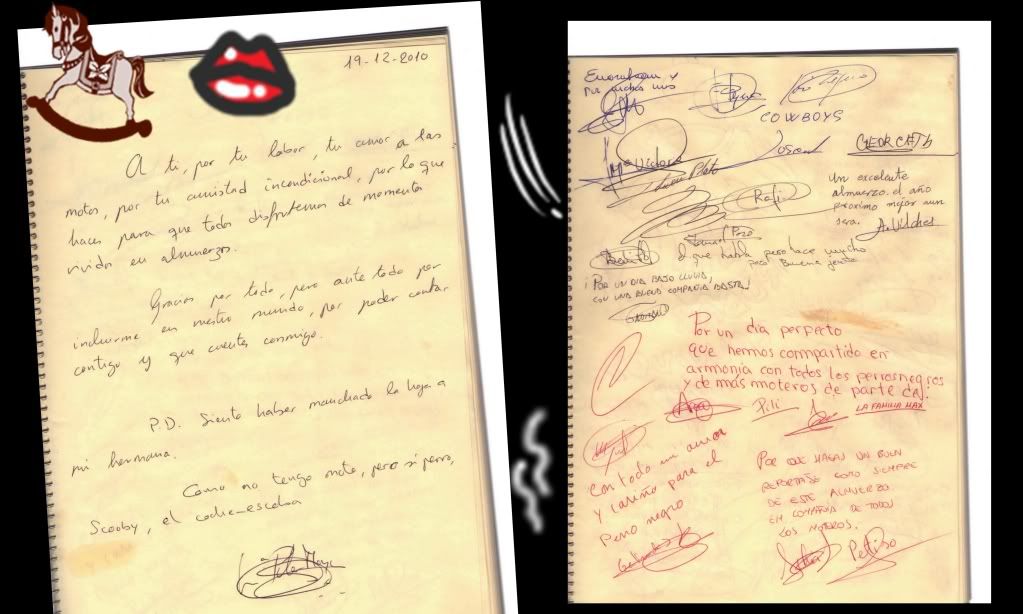 19-12-2010
A ti, por tu labor, tu amor a las
motos, por tu amistad incondicional, por lo que
haces para que todos disfrutemos de momentos
vividos en almuerzos.
Gracias por todo, pero ante todo por
incluirme en vuestro mundo, por poder contar
contigo y que cuentes conmigo.
P.D. Siento haber manchado la hoja a
mi hermana.
Como no tengo moto, pero si perro,
Scooby, el coche-escoba
Enorabuena y
por muchos mas
COWBOYS
Mª Victoria
Josed
Rafi
Un excelente
almuerzo. el año
proximo mejor aun
sera.
A. Vilches
el que habla pero hace mucho
pero buena jente
¡POR UN DIA BAJO LLUVIA,
CON UNA BUENA COMPAÑIA BASTA!
Por un dia perfecto
que hemos compartido en
armonia con todos los perrosnegros
y demás moteros de parte de:
Pili
LA FAMILIA MAX
Con todo mi amor
y cariño para el
Perro negro
POR QUE HAGAN UN BUEN
REPORTAJE COMO SIEMPRE
DE ESTE ALMUERZO
EN COMPAÑIA DE TODOS
LOS MOTEROS.